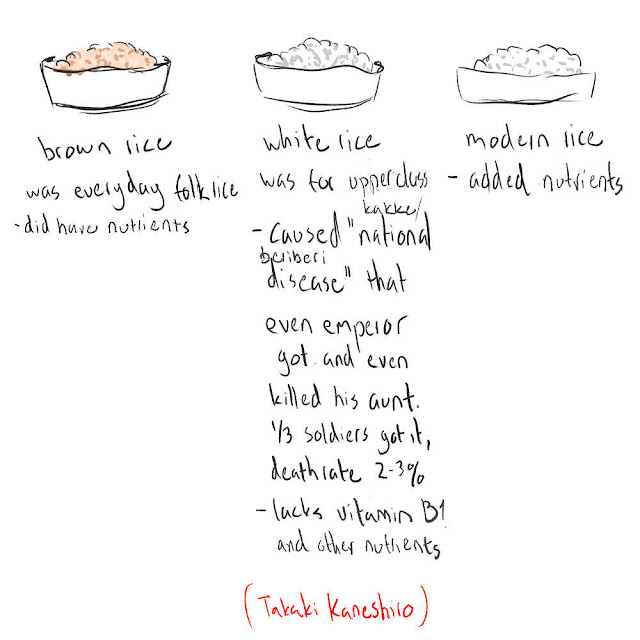 brown rice
was everyday folk rice
-did have nutrients
white rice
was for upperclass
kakke/
-caused "national
beriberi
disease" that
even emperor
got and even
killed his aunt.
1/3 soldiers got it,
deathrate 2-3%
-lacks vitamin B1
and other nutrients
modern rice
- added nutrients
(Takaki Kaneshiro)